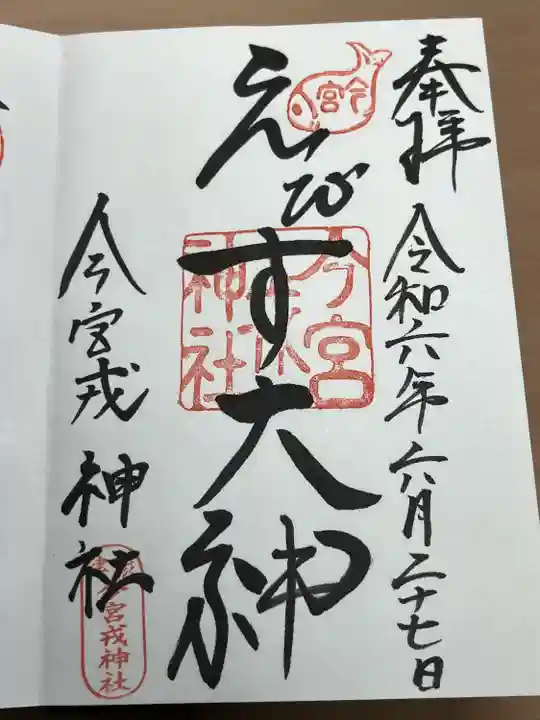 奉拝
令和六年六月二十七日
今宮
えびす大神
今宮戎神社
今宮戎神社
今宮戎神社